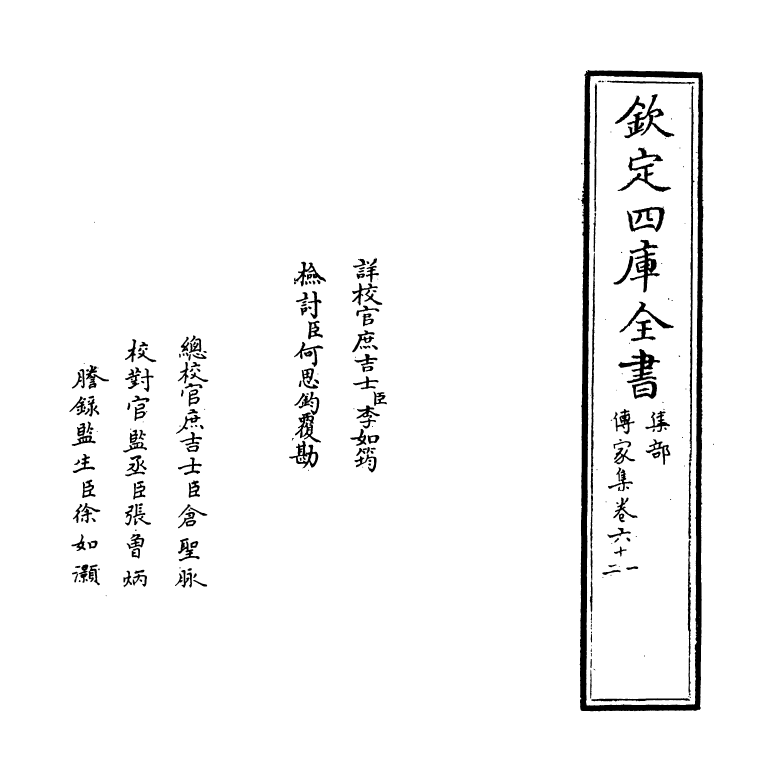 欽定四庫全書
集部
傳家集卷六十一
二
詳校官庶吉士臣李如筠
檢討臣何思鈞覆勘
總校官庶吉士臣倉聖脉
校對官監丞臣張曾炳
謄錄監生臣徐如灝